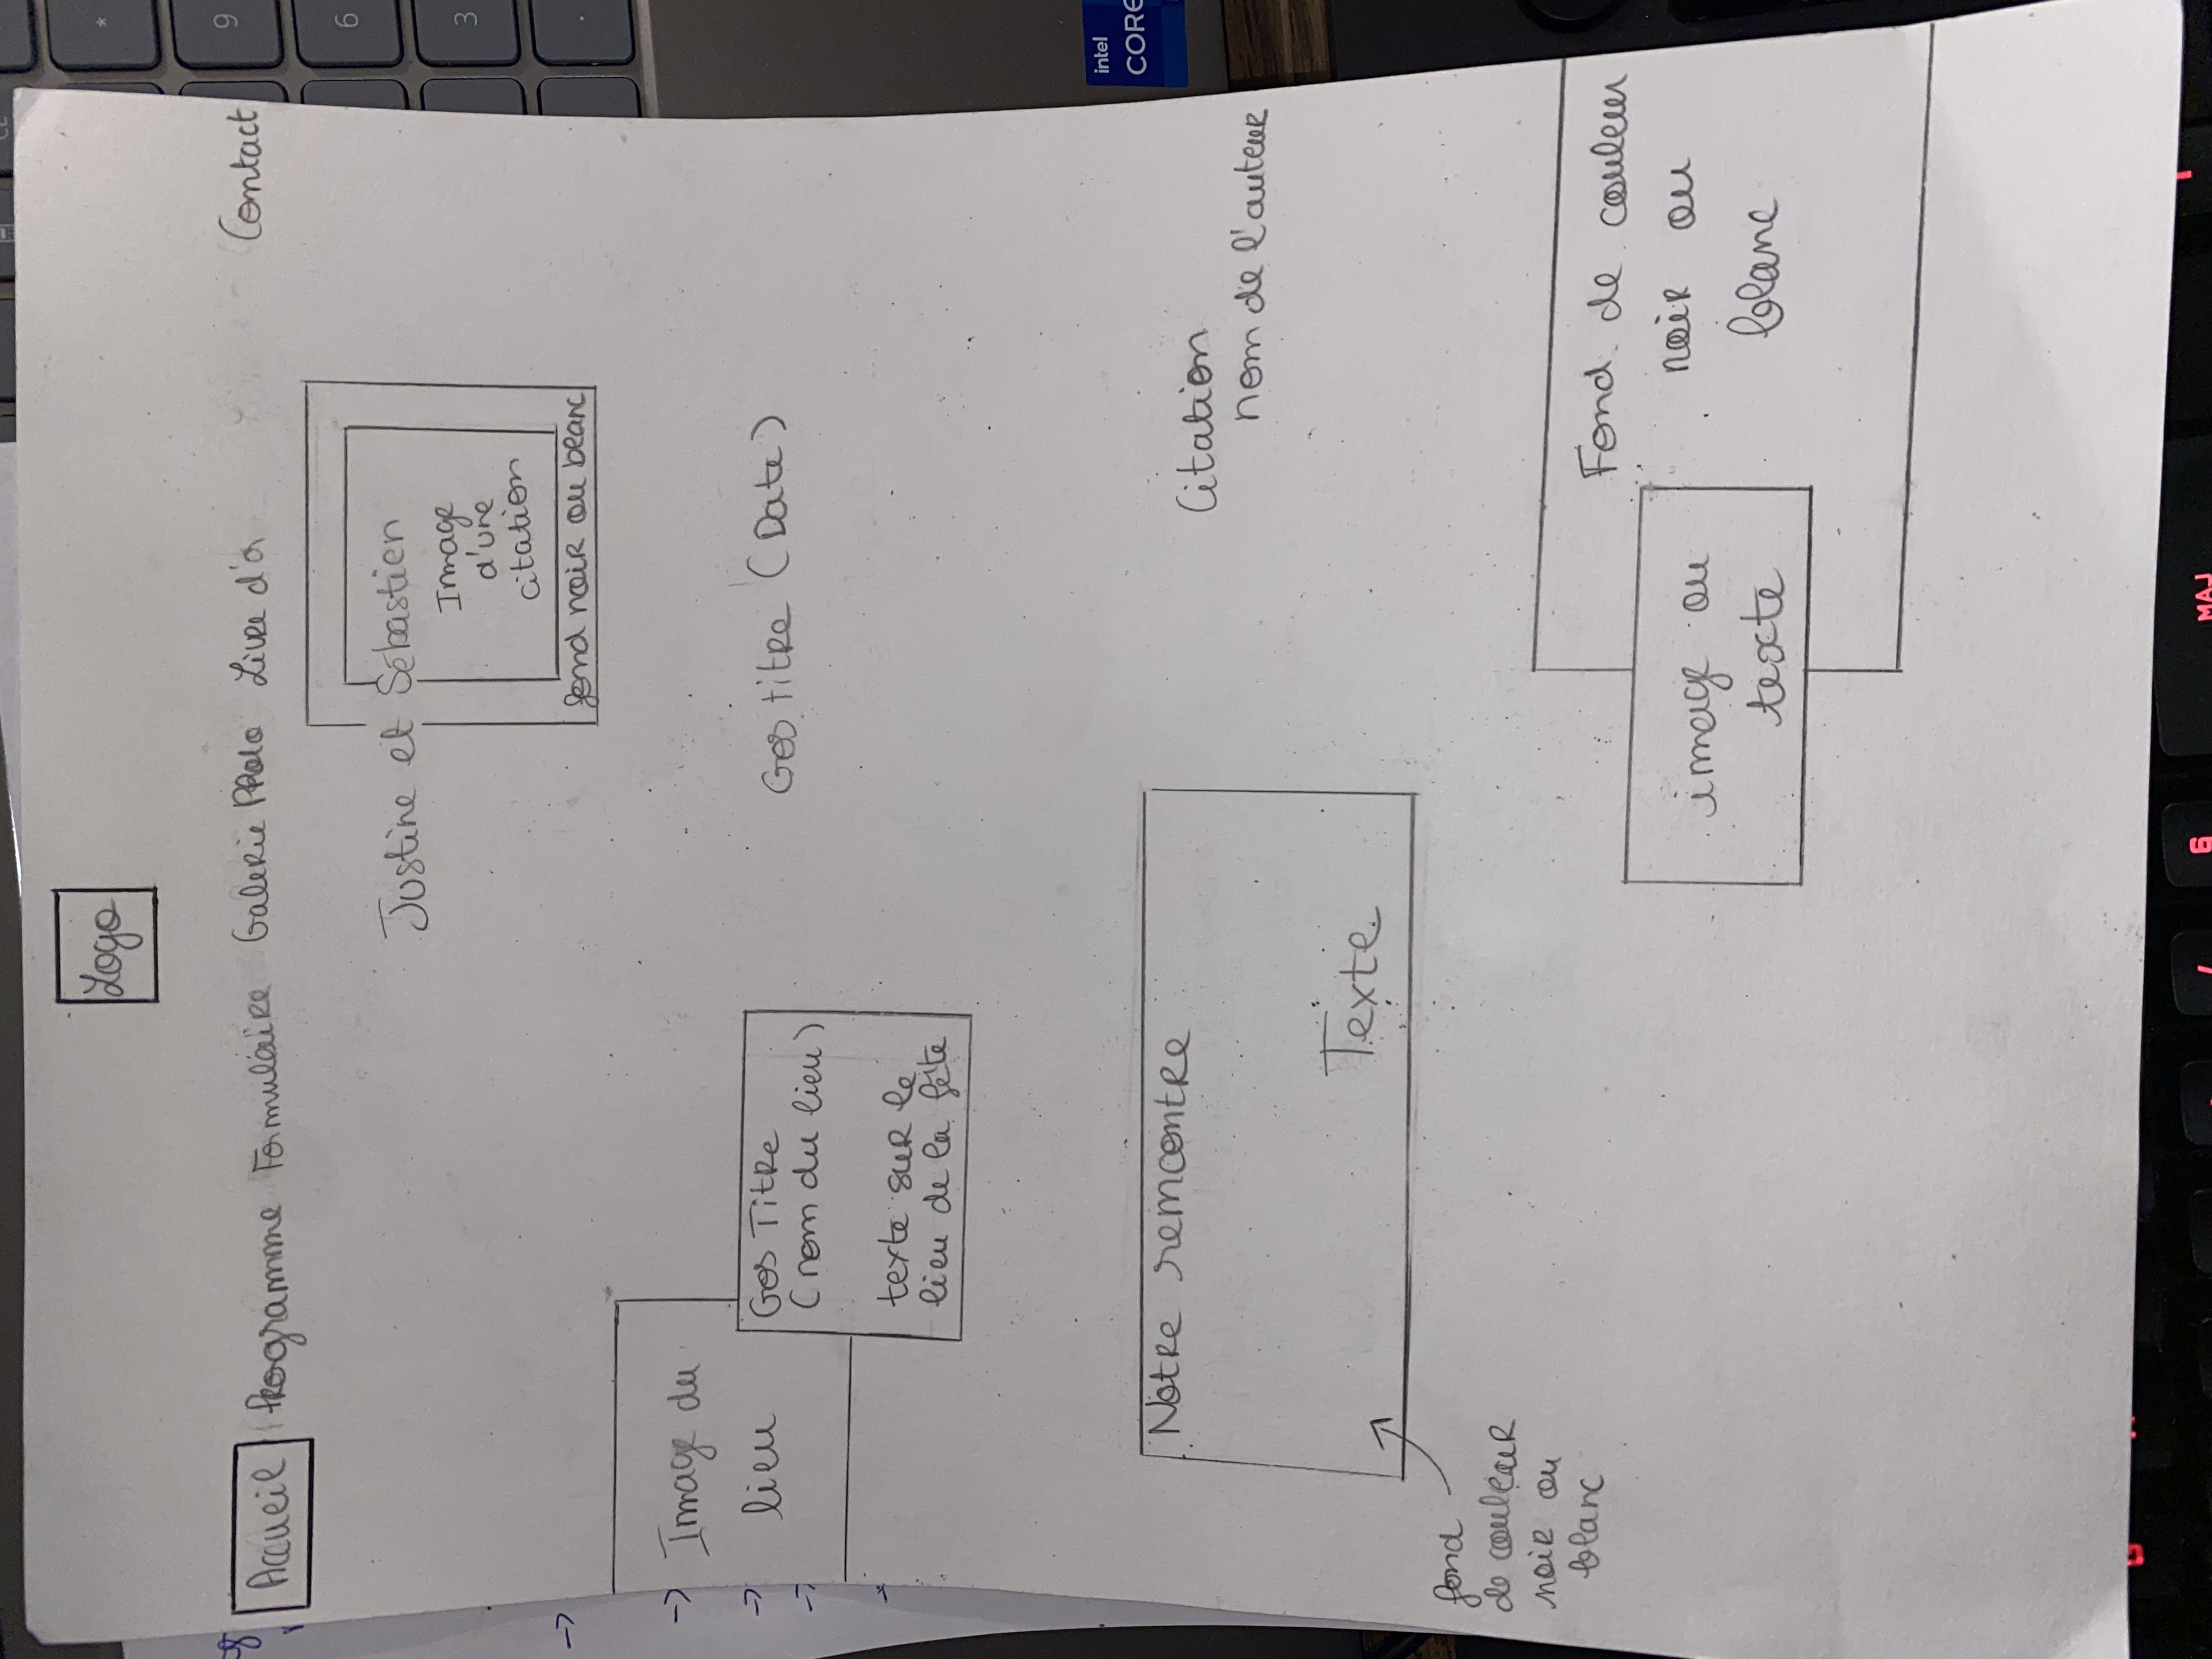 Logo
Accueil Programme Formulaire Galerie Photo Livre d'or Contact
Justine et Sébastien
Image
d'une
citation
fond noir ou blanc
Image du
lieu
Gos Titre
(nom du lieu)
texte sur le
lieu de la fête
Gos titre (Date)
Notre remcontre
Texte
fond
de couleur
noir ou
blanc
Citation
nom de l'auteur
Fond de couleur
noir ou
blanc
image ou
texte
*
9
6
3
.
intel
CORE
6
MAJ